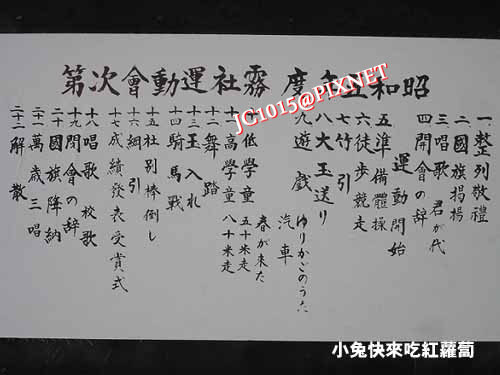 昭和五年度 霧社運動會次第
一整列敬禮
二國旗掲揚
三唱歌 君が代
四開會の辞
運動開始
五準備體操
六徒歩競走
七竹引
八大玉送り
九遊戲 ゆりかごのうた
汽車
春が来た
十低學童 五十米走
十一高學童 八十米走
十二舞踏
十三玉入れ
十四騎馬戰
十五社別棒倒し
十六綱引
十七成績發表受賞式
十八唱歌 校歌
十九閉會の辞
二十國旗降納
二十一萬歲三唱
二十二解散
JC1015@PIXNET
小兔快來吃紅蘿蔔